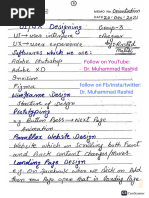 MEMO No. Orientation
DATE 20-Dec-2021
UI/UX Designing
Group-3
UI → user interface
UX → user experience
Softwares which we use:
Adobe Photoshop
Follow on YouTube:
Adobe XD
Dr. Muhammad Rashid
Invision
Figma
Follow on Fb/Insta/twitter:
Wireframe Design
Dr. Muhammad Rashid
Structure of design
Prototyping
e.g Button Press → Next Page
Animation
Parallax Website Design
Website which on Scrolling both Front
and Back content changes/moves.
Landing Page Design
e.g on facebook when we click on Add
then new Page open that is landing
CamScanner